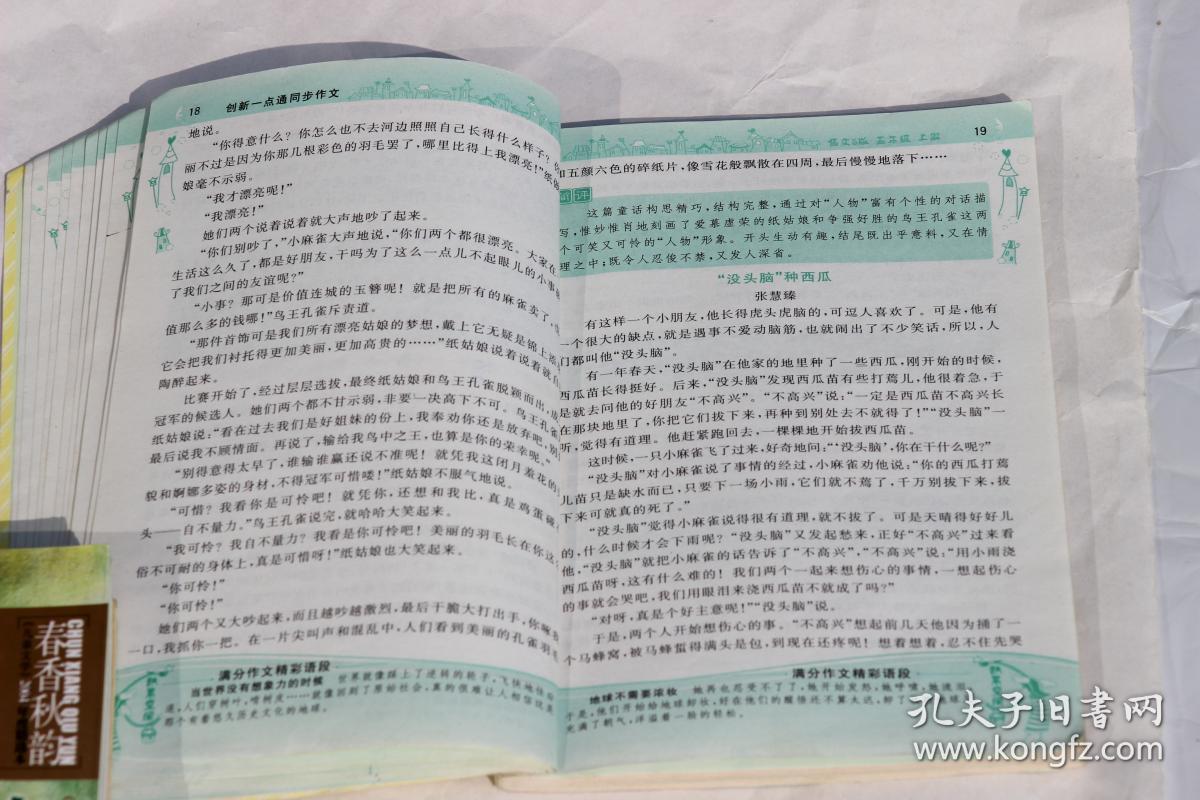 18 创新一点通同步作文
地说。
“你得意什么？你怎么也不去河边照照自己长得什么样子？
丽不过是因为你那几根彩色的羽毛罢了，哪里比得上我漂亮！”纸
娘毫不示弱。
“我才漂亮呢！”
“我漂亮！”
她们两个说着说着就大声地吵了起来。
“你们别吵了，”小麻雀大声地说，“你们两个都很漂亮。大家在
生活这么久了，都是好朋友，干吗为了这么一点儿不起眼儿的小事
了我们之间的友谊呢？”
“小事？那可是价值连城的玉簪呢！就是把所有的麻雀卖了，
值那么多的钱哪！”鸟王孔雀斥责道。
“那件首饰可是我们所有漂亮姑娘的梦想，戴上它无疑是锦上添
它会把我们衬托得更加美丽，更加高贵的……”纸姑娘说着说着就自
陶醉起来。
比赛开始了，经过层层选拔，最终纸姑娘和鸟王孔雀脱颖而出，成
冠军的候选人。她们两个都不甘示弱，非要一决高下不可。鸟王孔雀
纸姑娘说：“看在过去我们是好姐妹的份上，我奉劝你还是放弃吧，别
最后说我不顾情面。再说了，输给我鸟中之王，也算是你的荣幸呢。”
“别得意得太早了，谁输谁赢还说不准呢！就凭我这闭月羞花的
貌和婀娜多姿的身材，不得冠军可惜喽！”纸姑娘不服气地说。
“可惜？我看你是可怜吧！就凭你，还想和我比，真是鸡蛋碰
头——自不量力。”鸟王孔雀说完，就哈哈大笑起来。
“我可怜？我自不量力？我看是你可怜吧！美丽的羽毛长在你这
俗不可耐的身体上，真是可惜呀！”纸姑娘也大笑起来。
“你可怜！”
“你可怜！”
她们两个又大吵起来，而且越吵越激烈，最后干脆大打出手，你啄我
一口，我抓你一把。在一片尖叫声和混乱中，人们看到美丽的孔雀羽毛
满分作文精彩语段
当世界没有想象力的时候 世界就像踩上了逆转的轮子，飞快地往后
退，人们穿树叶，啃树皮……就像回到了原始社会，真的很难让人相信这是
那个有着悠久历史文化的地球。
语文S版 五年级 上册 19
和五颜六色的碎纸片，像雪花般飘散在四周，最后慢慢地落下……
简评
这篇童话构思精巧，结构完整，通过对“人物”富有个性的对话描
写，惟妙惟肖地刻画了爱慕虚荣的纸姑娘和争强好胜的鸟王孔雀这两
个可笑又可怜的“人物”形象。开头生动有趣，结尾既出乎意料，又在情
理之中；既令人忍俊不禁，又发人深省。
“没头脑”种西瓜
张慧臻
有这样一个小朋友，他长得虎头虎脑的，可逗人喜欢了。可是，他有
一个很大的缺点，就是遇事不爱动脑筋，也就闹出了不少笑话，所以，人
们都叫他“没头脑”。
有一年春天，“没头脑”在他家的地里种了一些西瓜，刚开始的时候，
西瓜苗长得挺好。后来，“没头脑”发现西瓜苗有些打蔫儿，他很着急，于
是就去问他的好朋友“不高兴”。“不高兴”说：“一定是西瓜苗不高兴长
在那块地里了，你把它们拔下来，再种到别处去不就得了！”“没头脑”一
听，觉得有道理。他赶紧跑回去，一棵棵地开始拔西瓜苗。
这时候，一只小麻雀飞了过来，好奇地问：“‘没头脑’，你在干什么呢？”
“没头脑”对小麻雀说了事情的经过，小麻雀劝他说：“你的西瓜打蔫
儿苗只是缺水而已，只要下一场小雨，它们就不蔫了，千万别拔下来，拔
下来可就真的死了。”
“没头脑”觉得小麻雀说得很有道理，就不拔了。可是天晴得好好儿
的，什么时候才会下雨呢？“没头脑”又发起愁来，正好“不高兴”过来看
他，“没头脑”就把小麻雀的话告诉了“不高兴”，“不高兴”说：“用小雨浇
西瓜苗呀，这有什么难的！我们两个一起来想伤心的事情，一想起伤心
的事就会哭吧，我们用眼泪来浇西瓜苗不就成了吗？”
“对呀，真是个好主意呢！”“没头脑”说。
于是，两个人开始想伤心的事。“不高兴”想起前几天他因为捅了一
个马蜂窝，被马蜂蜇得满头是包，到现在还疼呢！想着想着，忍不住先哭
满分作文精彩语段
地球不需要浓妆 她再也忍受不了了，她开始发怒，她呼啸，她流泪，
于是，他们开始给地球卸妆，好在他们的醒悟还不算太迟，卸了
充满了朝气，洋溢着一脸的轻松。
春香秋韵
CHUN XIANG QIU YUN
孔夫子旧书网
www.kongfz.com